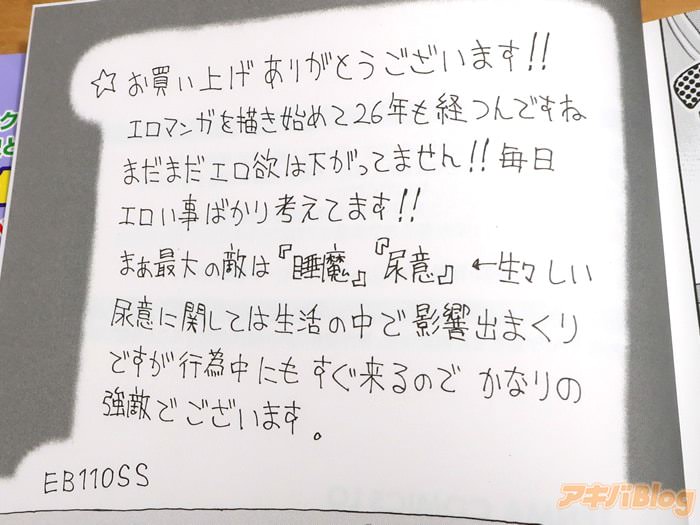 ☆お買い上げありがとうございます!!
エロマンガを描き始めて26年も経つんですね
まだまだエロ欲は下がってません!!毎日
エロい事ばかり考えてます!!
まぁ最大の敵は『睡魔』『尿意』←生々しい
尿意に関しては生活の中で影響出まくり
ですが行為中にもすぐ来るのでかなりの
強敵でございます。
EB110SS
アキバBlog